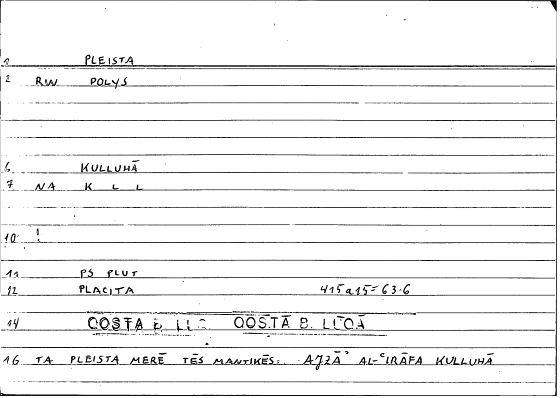 1 PLEISTA
2 RW POLYS
6 KULLUHĀ
7 NA K L L
10 !
11 PS PLUT
12 PLACITA 415a15=63.6
14 QOSTA B. QOSṬĀ B. LŪQĀ
16 TA PLEISTA MERĒ TĒS MANTIKĒS: AJZĀʾ AL-ʿIRĀFA KULLUHĀ